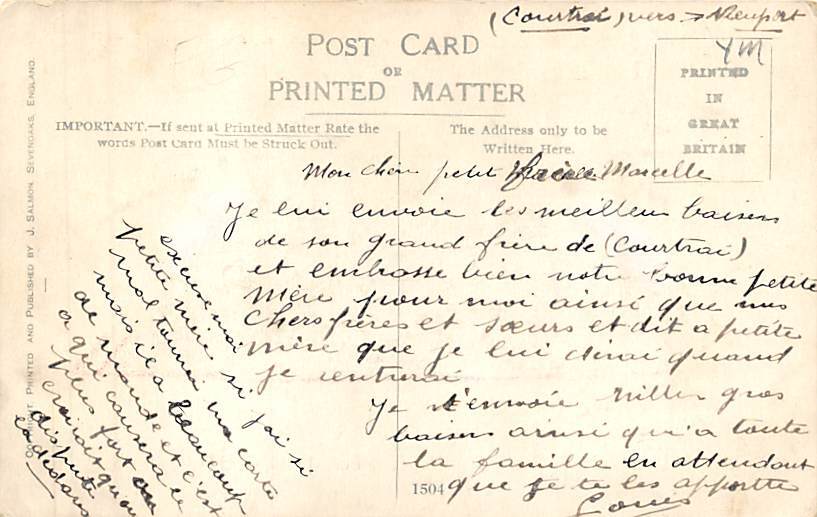 (Courtrai) vers → Nieuport
YM
POST CARD
OR
PRINTED MATTER
PRINTED
IN
GREAT
BRITAIN
IMPORTANT.—If sent at Printed Matter Rate the
words Post Card Must be Struck Out.
The Address only to be
Written Here.
COPYRIGHT. PRINTED AND PUBLISHED BY J. SALMON, SEVENOAKS, ENGLAND.
Mon cher petit Marcelle
Je lui envoie les meilleur baisers
de son grand frère de (Courtrai)
et embrasse bien notre bonne petite
Mère pour moi ainsi que nos
Chers frères et sœurs et dit a petite
mère que je lui dirai quand
je rentrerai
Je t'envoie milles gros
baisers ainsi qu'a toute
la famille en attendant
que je te les apporte
Louis
1504
excuse moi
petite mère si j'ai si
mal tourné ma carte
mais il a beaucoup
de monde et c'est
a qui causera le
plus fort on
croirait qu'on
dispute
la dedans